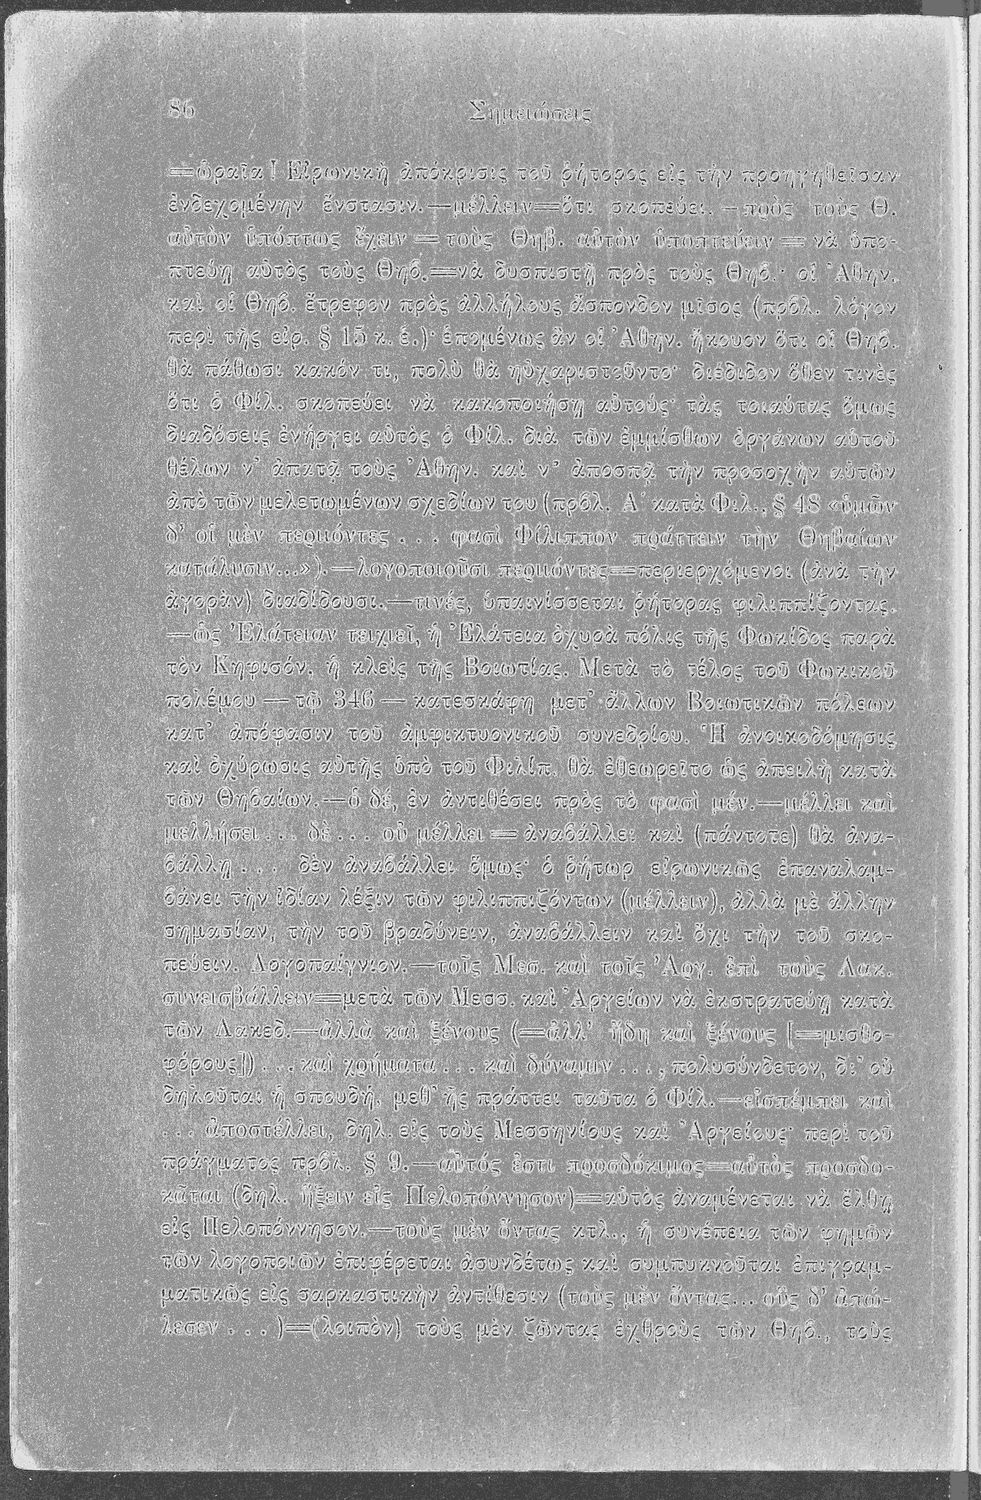 86 Σημειώσεις
=ὡραῖα! Εἰρωνικὴ ἀπόκρισις τοῦ ῥήτορος εἰς τὴν προηγηθεῖσαν
ἐνδεχομένην ἔνστασιν.—μέλλειν=ὅτι σκοπεύει.—πρὸς τοὺς Θ.
αὐτὸν ὑπόπτως ἔχειν=τοὺς Θηβ. αὐτὸν ὑποπτεύειν=νὰ ὑπο-
πτεύῃ αὐτὸς τοὺς Θηβ.=νὰ δυσπιστῇ πρὸς τοὺς Θηβ.· οἱ Ἀθην.
καὶ οἱ Θηβ. ἔτρεφον πρὸς ἀλλήλους ἄσπονδον μῖσος (πρβλ. λόγον
περὶ τῆς εἰρ. § 15 κ. ἑ.)· ἑπομένως ἂν οἱ Ἀθην. ἤκουον ὅτι οἱ Θηβ.
θὰ πάθωσι κακόν τι, πολὺ θὰ ηὐχαριστοῦντο· διέδιδον ὅθεν τινὲς
ὅτι ὁ Φίλ. σκοπεύει νὰ κακοποιήσῃ αὐτούς· τὰς τοιαύτας ὅμως
διαδόσεις ἐνήργει αὐτὸς ὁ Φίλ. διὰ τῶν ἐμμίσθων ὀργάνων αὑτοῦ
θέλων ν’ ἀπατᾷ τοὺς Ἀθην. καὶ ν’ ἀποσπᾷ τὴν προσοχὴν αὐτῶν
ἀπὸ τῶν μελετωμένων σχεδίων του (πρβλ. Α΄ κατὰ Φιλ., § 48 «ἡμῶν
δ’ οἱ μὲν περιιόντες... φασὶ Φίλιππον πράττειν τὴν Θηβαίων
κατάλυσιν...»).—λογοποιοῦσι περιιόντες=περιερχόμενοι (ἀνὰ τὴν
ἀγορὰν) διαδίδουσι.—τινές, ὑπαινίσσεται ῥήτορας φιλιππίζοντας.
—ὡς Ἐλάτειαν τειχιεῖ, ἡ Ἐλάτεια ὀχυρὰ πόλις τῆς Φωκίδος παρὰ
τὸν Κηφισόν, ἡ κλεὶς τῆς Βοιωτίας. Μετὰ τὸ τέλος τοῦ Φωκικοῦ
πολέμου—τῷ 346—κατεσκάφη μετ’ ἄλλων Βοιωτικῶν πόλεων
κατ’ ἀπόφασιν τοῦ ἀμφικτυονικοῦ συνεδρίου. Ἡ ἀνοικοδόμησις
καὶ ὀχύρωσις αὐτῆς ὑπὸ τοῦ Φιλίπ. θὰ ἐθεωρεῖτο ὡς ἀπειλὴ κατὰ
τῶν Θηβαίων.—ὁ δέ, ἐν ἀντιθέσει πρὸς τὸ φασὶ μέν.—μέλλει καὶ
μελλήσει... δὲ... οὐ μέλλει=ἀναβάλλει καὶ (πάντοτε) θὰ ἀνα-
βάλλῃ... δὲν ἀναβάλλει ὅμως· ὁ ῥήτωρ εἰρωνικῶς ἐπαναλαμ-
βάνει τὴν ἰδίαν λέξιν τῶν φιλιππιζόντων (μέλλειν), ἀλλὰ μὲ ἄλλην
σημασίαν, τὴν τοῦ βραδύνειν, ἀναβάλλειν καὶ ὄχι τὴν τοῦ σκο-
πεύειν. Λογοπαίγνιον.—τοῖς Μεσ. καὶ τοῖς Ἀργ. ἐπὶ τοὺς Λακ.
συνεισβάλλειν=μετὰ τῶν Μεσσ. καὶ Ἀργείων νὰ ἐκστρατεύῃ κατὰ
τῶν Λακεδ.—ἀλλὰ καὶ ξένους (=ἀλλ’ ἤδη καὶ ξένους [=μισθο-
φόρους])... καὶ χρήματα... καὶ δύναμιν..., πολυσύνδετον, δι’ οὗ
δηλοῦται ἡ σπουδή, μεθ’ ἧς πράττει ταῦτα ὁ Φίλ.—εἰσπέμπει καὶ
... ἀποστέλλει, δηλ. εἰς τοὺς Μεσσηνίους καὶ Ἀργείους· περὶ τοῦ
πράγματος πρβλ. § 9.—αὐτός ἐστι προσδόκιμος=αὐτὸς προσδο-
κᾶται (δηλ. ἥξειν εἰς Πελοπόννησον)=αὐτὸς ἀναμένεται νὰ ἔλθῃ
εἰς Πελοπόννησον.—τοὺς μὲν ὄντας κτλ., ἡ συνέπεια τῶν φημῶν
τῶν λογοποιῶν ἐπιφέρεται ἀσυνδέτως καὶ συμπυκνοῦται ἐπιγραμ-
ματικῶς εἰς σαρκαστικὴν ἀντίθεσιν (τοὺς μὲν ὄντας... οὓς δ’ ἀπώ-
λεσεν...)=(λοιπὸν) τοὺς μὲν ζῶντας ἐχθροὺς τῶν Θηβ., τοὺς